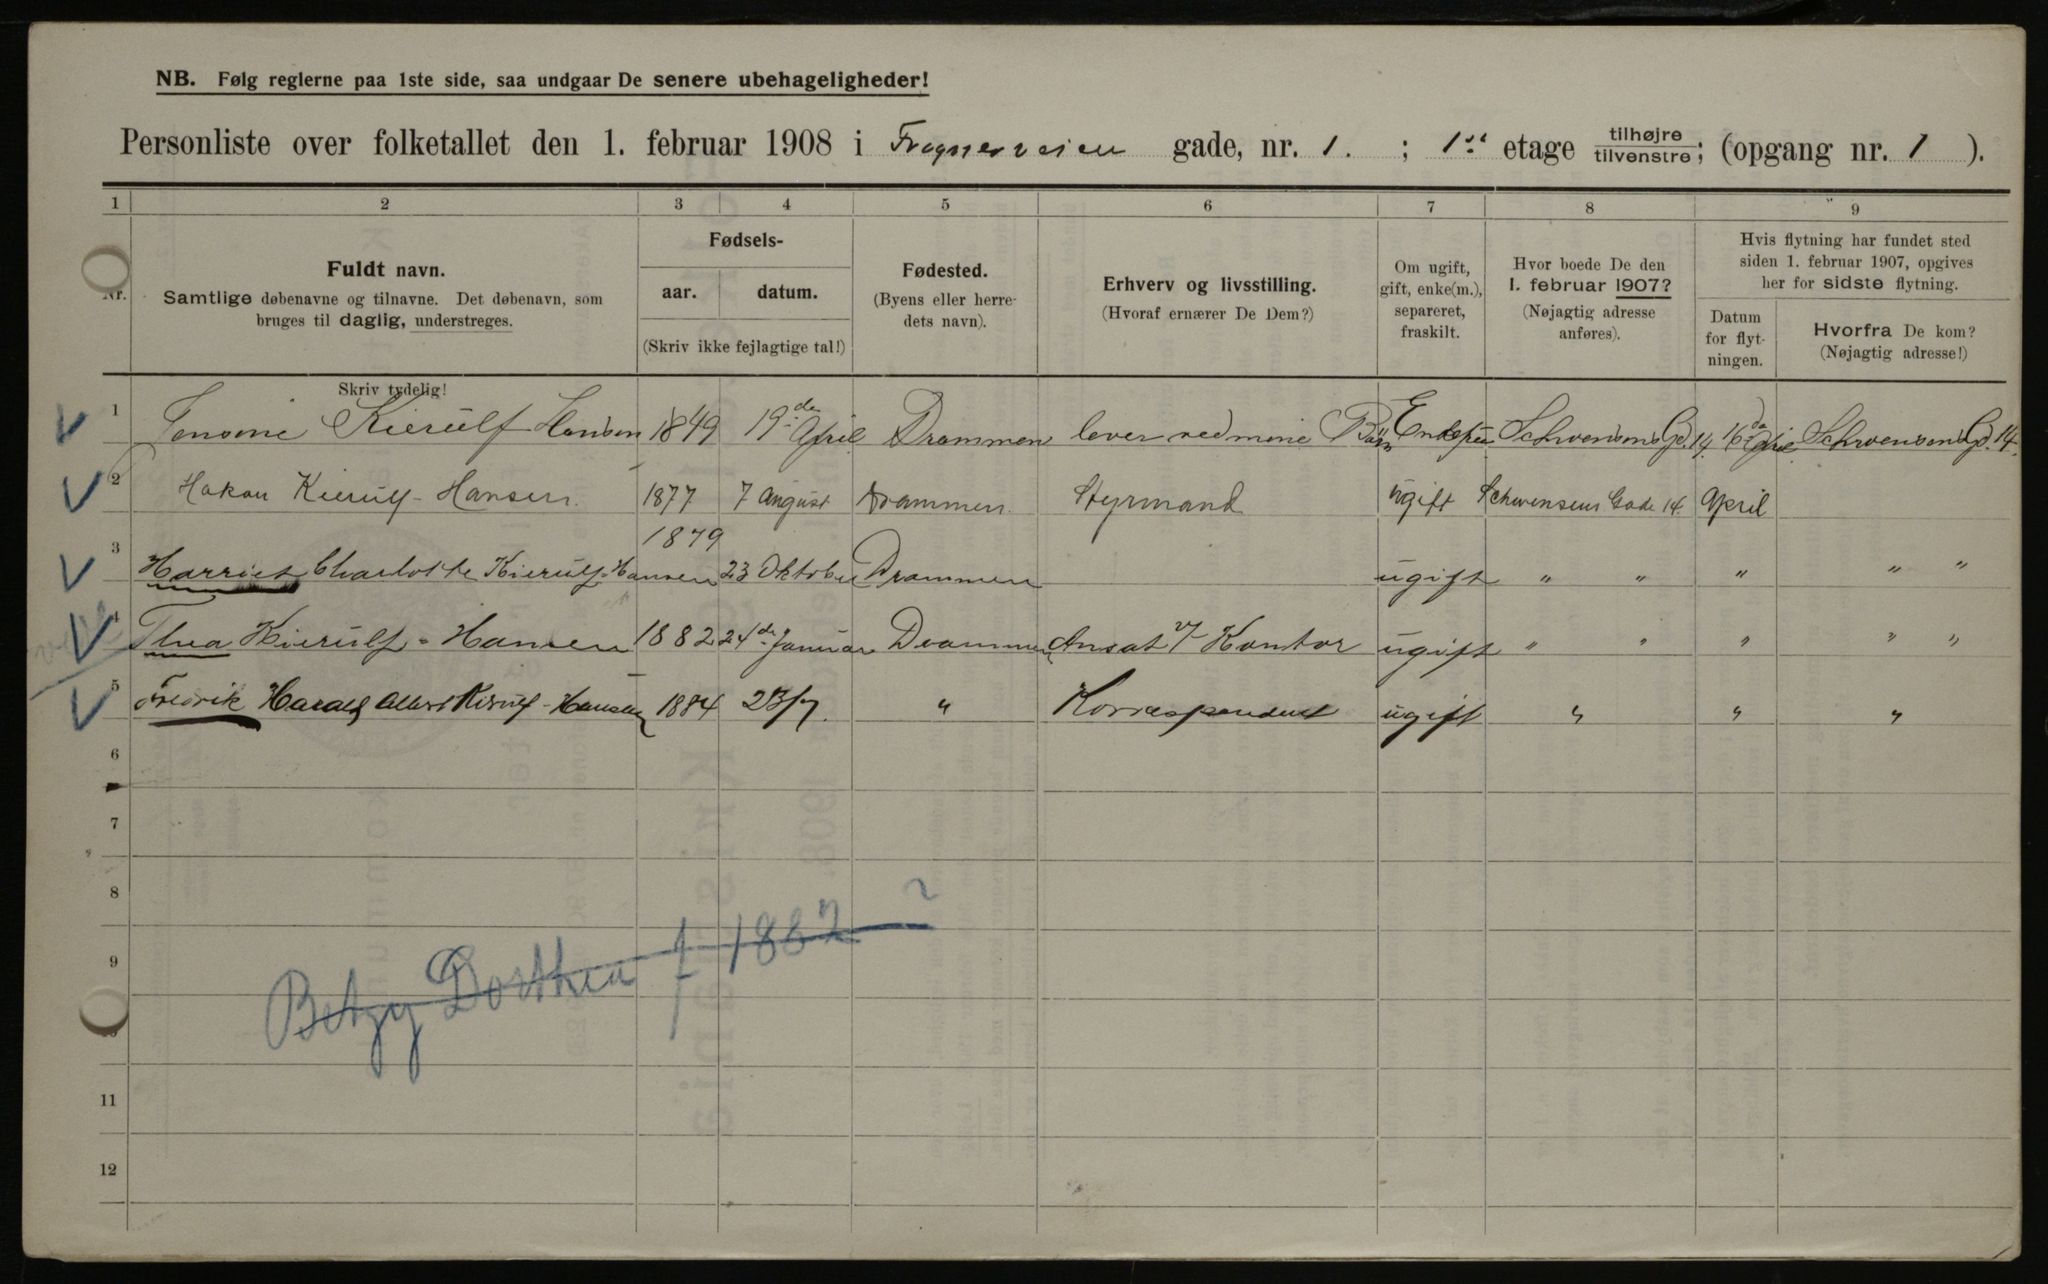 NB. Følg reglerne paa 1ste side, saa undgaar De senere ubehageligheder!
Personliste over folketallet den 1. februar 1908 i Frognerveien gade, nr. 1. ; 1ste etage tilhøjre/tilvenstre; (opgang nr. 1 ).
1 2 3 4 5 6 7 8 9
Nr.
Fuldt navn.
Samtlige døbenavne og tilnavne. Det døbenavn, som
bruges til daglig, understreges.
Skriv tydelig!
Fødsels-
aar. datum.
(Skriv ikke fejlagtige tal!)
Fødested.
(Byens eller herre-
dets navn).
Erhverv og livsstilling.
(Hvoraf ernærer De Dem?)
Om ugift,
gift, enke(m.),
separeret,
fraskilt.
Hvor boede De den
1. februar 1907?
(Nøjagtig adresse
anføres).
Hvis flytning har fundet sted
siden 1. februar 1907, opgives
her for sidste flytning.
Datum
for flyt-
ningen.
Hvorfra De kom?
(Nøjagtig adresse!)
1 Kierulf Hansen 1849 19de April Drammen lever ved mine Børn Schwensens Gd. 14. 16de April Schwensens Gd. 14.
2 Hakon Kierulf-Hansen. 1877 7 August Drammen. Styrmand ugift Schwensens Gade 14. April
3 Harriet Charlotte Kierulf-Hansen 1879 23 Oktober Drammen ugift " " " " "
4 Thea Kierulf-Hansen 1882 24de Januar Drammen Ansat v/ Kontor ugift " " " " "
5 Fredrik Harald Albert Kierulf-Hansen 1884 23/7. " Korrespondent ugift " " "
6
7
8
9
10
11
12
Betzy Dorthea † 1882 ?